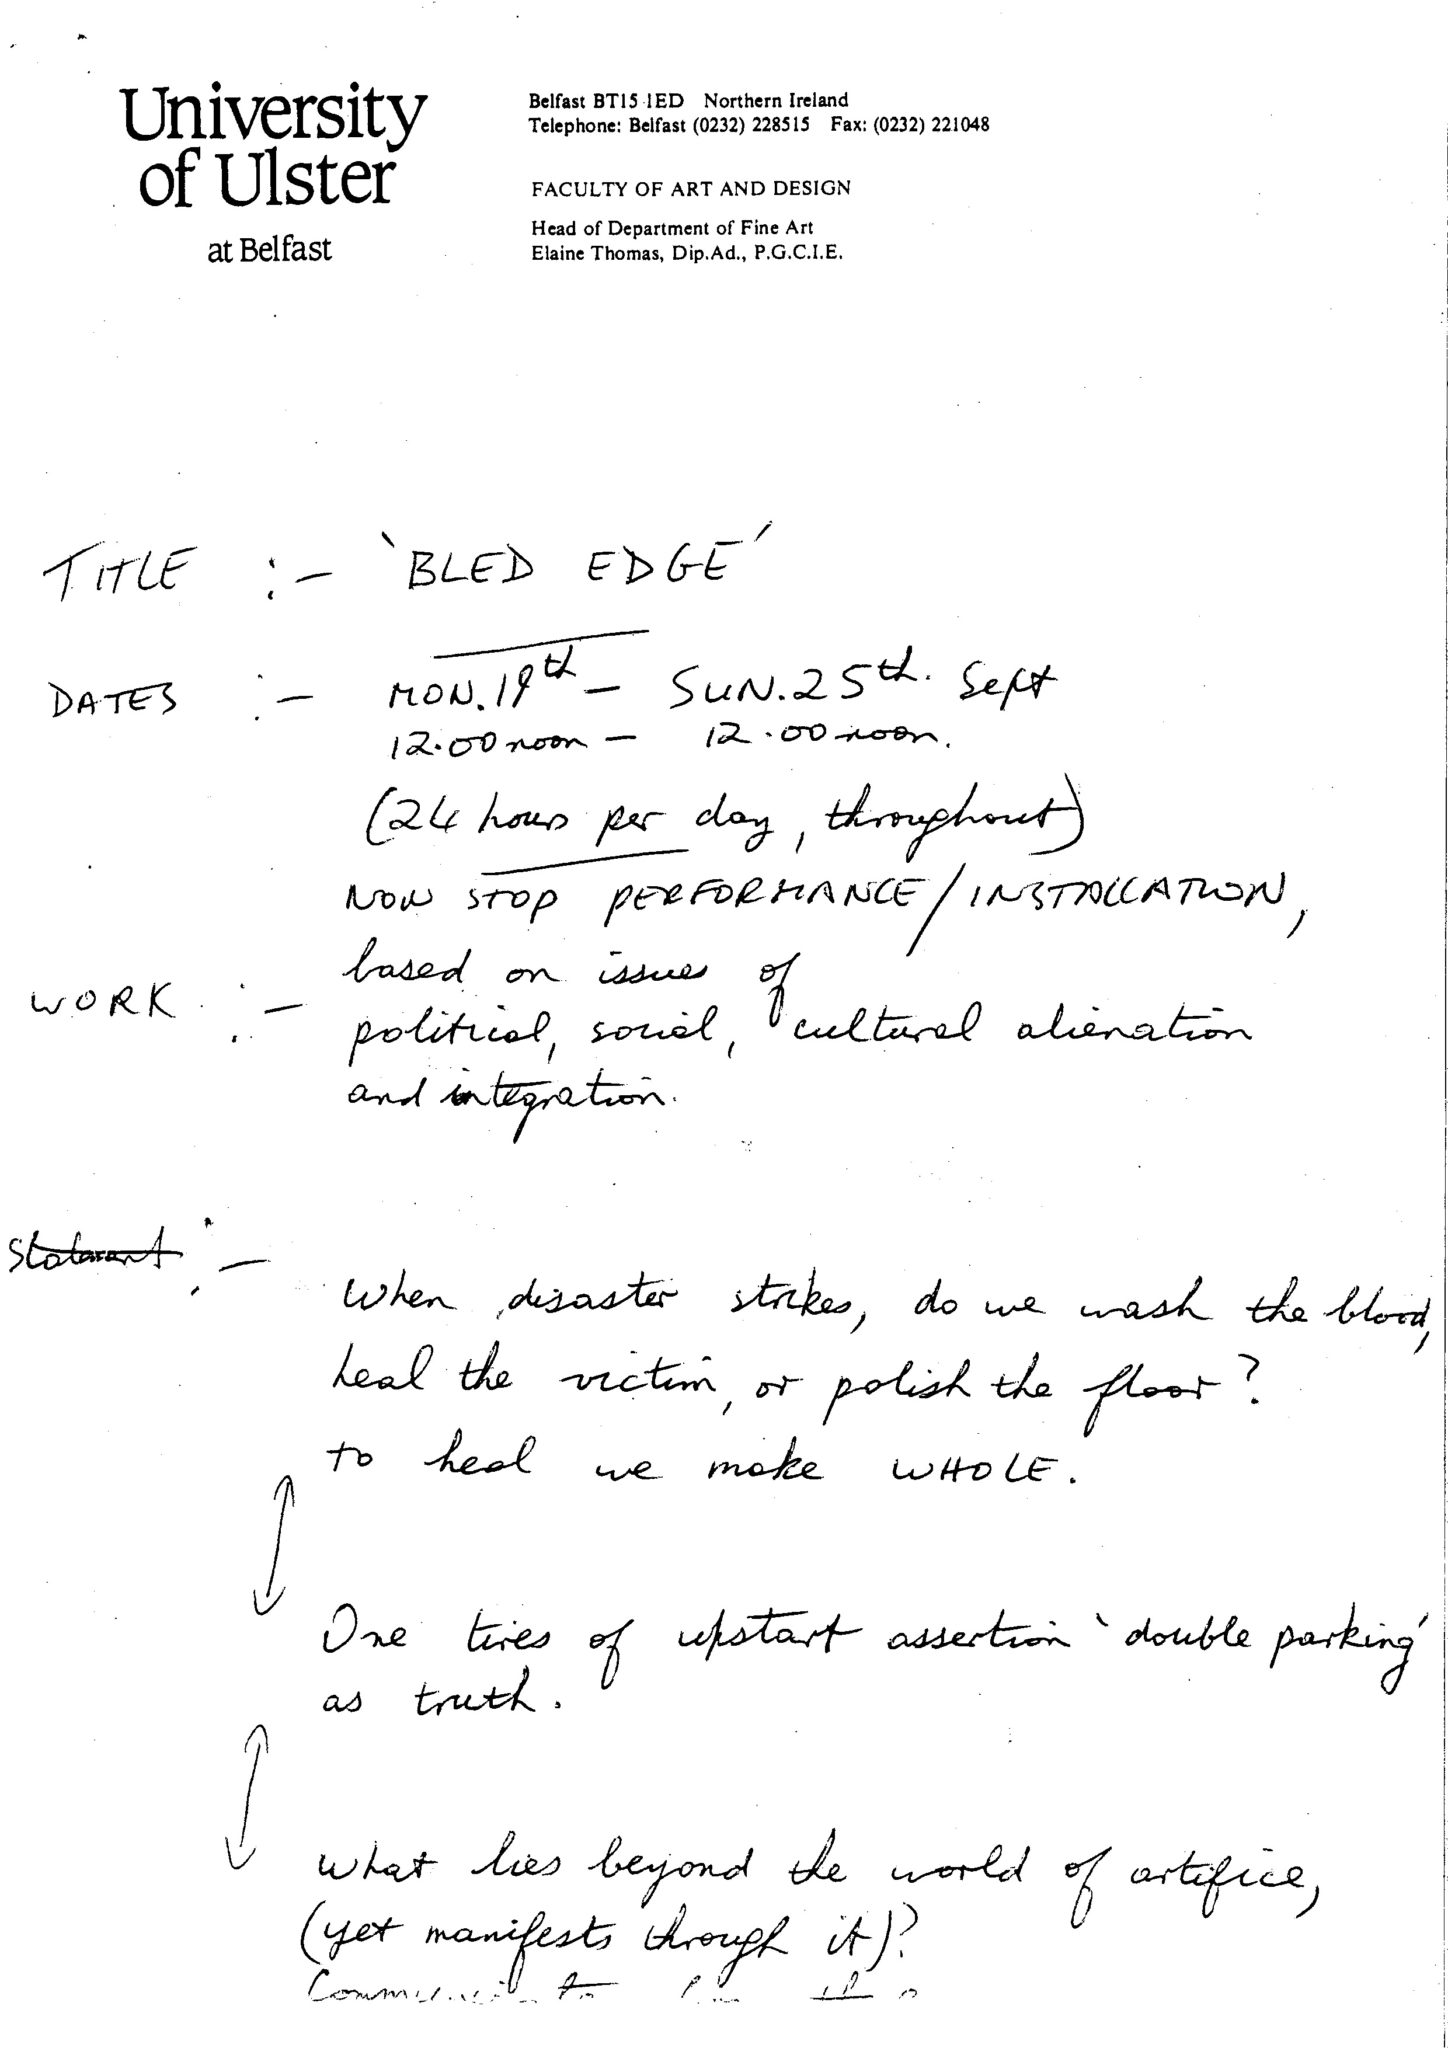 University
of Ulster
at Belfast
Belfast BT15 1ED Northern Ireland
Telephone: Belfast (0232) 228515 Fax: (0232) 221048
FACULTY OF ART AND DESIGN
Head of Department of Fine Art
Elaine Thomas, Dip.Ad., P.G.C.I.E.
TITLE :- 'BLED EDGE'
DATES :- MON. 19th - SUN. 25th. Sept
12.00 noon - 12.00 noon.
(24 hours per day, throughout)
NON STOP PERFORMANCE/INSTALLATION,
based on issues of
WORK :- political, social, cultural alienation
and integration.
Statement :-
When disaster strikes, do we wash the blood,
heal the victim, or polish the floor?
to heal we make WHOLE.
One tires of upstart assertion 'double parking'
as truth.
What lies beyond the world of artifice,
(yet manifests through it)?